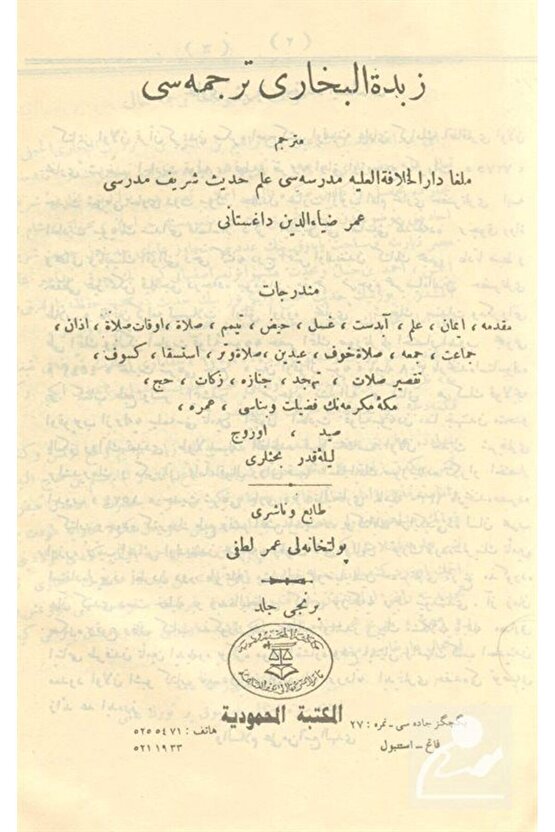 زبدة البخاری ترجمه سی
مترجم
ملغا دار الخلافة العلیه مدرسه سی علم حدیث شریف مدرسی
عمر ضیاءالدین داغستانی
مندرجات
مقدمه ، ایمان ، علم ، آبدست ، غسل ، حیض ، تیمم ، صلاة ، اوقات صلاة ، اذان ،
جماعت ، جمعه ، صلاة خوف ، عیدین ، صلاة وتر ، استسقا ، کسوف ،
تقصیر صلات ، تهجد ، جنازه ، زکات ، حج ،
مکهٔ مکرمه نك فضیلت وبناسی ، عمره ،
صید ، اوروج
لیلهٔ قدر بحثلری
طابع و ناشری
پولتخانه لی عمر لطفی
برنجی جلد
المكتبة المحمودية
یگیچگز جاده سی - نمره : ٢٧
فاتح - استنبول
هاتف : ٥٢٥ ٥٤ ٧١
٥٢١ ١٩ ٣٣